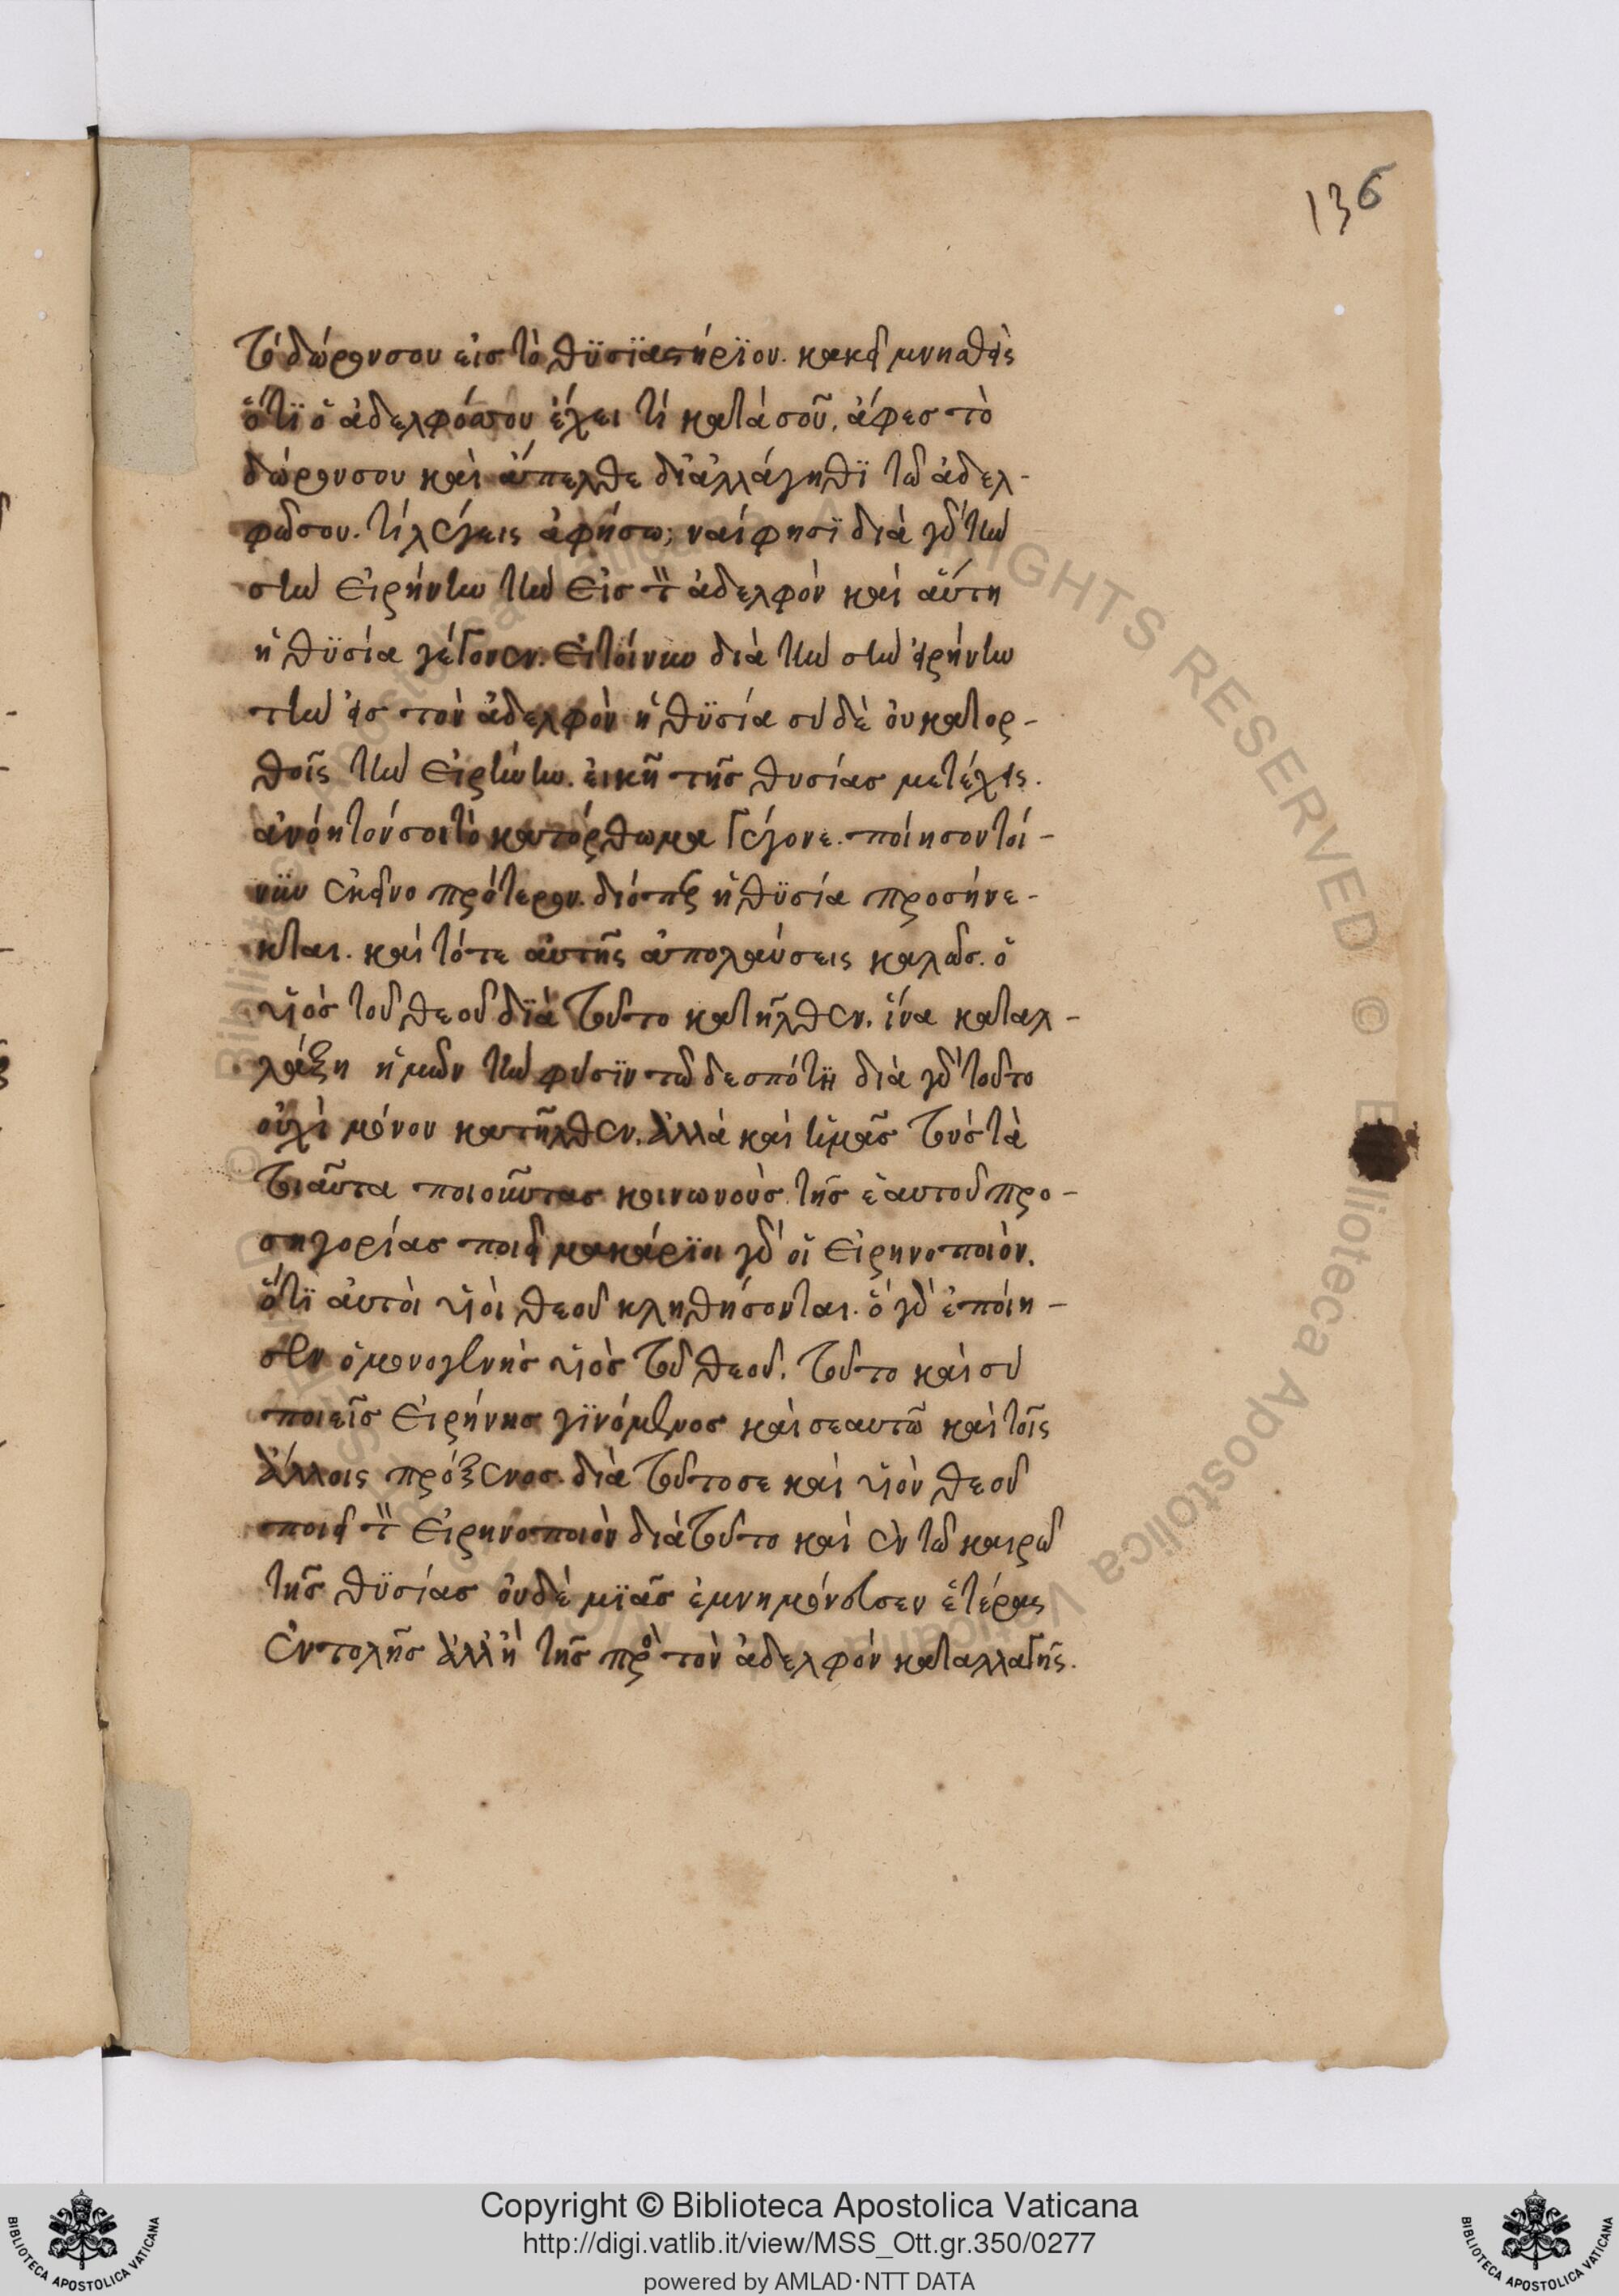 136
τὸ δώρον σου εἰς τὸ θϋσϊαστήρϊον. κακεῖ μνησθεὶς
ὅτϊ ὁ ἀδελφός σου ἔχει τί κατὰ σοῦ, ἄφες τὸ
δώρον σου καὶ ἄπελθε διἀλλάγηθϊ τῶ ἀδελ-
φῶ σου. τί λέγεις ἀφήσω; ναί φησϊ διὰ γὰρ τὴν
στὴν εἰρήνην τὴν εἰς τὸν ἀδελφὸν καὶ αὕτη
ἡ θϋσία γέγονεν. εἰ τοίνυν διὰ τὴν στὴν εἰρήνην
τὴν εἰς τὸν ἀδελφὸν ἡ θϋσία σὺ δὲ οὐ κατορ-
θοῖς τὴν εἰρήνην. εἰκῆ τῆς θυσίας μετέχεις.
ἀνόητόν σοι τὸ κατόρθωμα γέγονε. ποίησον τοί-
νϋν ἐκεῖνο πρότερον. διόπερ ἡ θϋσία προσήνε-
κται. καὶ τότε αὐτῆς ἀπολαύσεις καλῶς. ὁ
υἱὸς τοῦ θεοῦ δϊὰ τοῦτο κατῆλθεν. ἵνα καταλ-
λάξη ἡμῶν τὴν φύσϊν τῶ δεσπότϊ διὰ γὰρ τοῦτο
οὐχὶ μόνον κατῆλθεν. ἀλλὰ καὶ ἡμᾶς τοὺς τὰ
τοιαῦτα ποιοῦντας κοινωνοὺς τῆς ἑαυτοῦ προ-
σηγορίας ποιεῖ μακάρϊοι γὰρ οἱ εἰρηνοποιόν.
ὅτϊ αὐτοὶ υἱοὶ θεοῦ κληθήσονται. ὁ γὰρ ἐποίη-
σεν ὁ μονογενὴς υἱὸς τοῦ θεοῦ. τοῦτο καὶ σὺ
ποιεῖς εἰρήνης γϊνόμενος καὶ σεαυτῶ καὶ τοῖς
ἄλλοις πρόξενος. διὰ τοῦτο σε καὶ υἱὸν θεοῦ
ποιεῖ τὸν εἰρηνοποιὸν διὰ τοῦτο καὶ ἐν τῶ καιρῶ
τῆς θϋσίας οὐδὲ μϊᾶς ἐμνημόνευσεν ἑτέρας
ἐντολῆς ἀλλ' ἢ τῆς πρὸς τὸν ἀδελφὸν καταλλαγῆς.
Copyright © Biblioteca Apostolica Vaticana
http://digi.vatlib.it/view/MSS_Ott.gr.350/0277
powered by AMLAD·NTT DATA